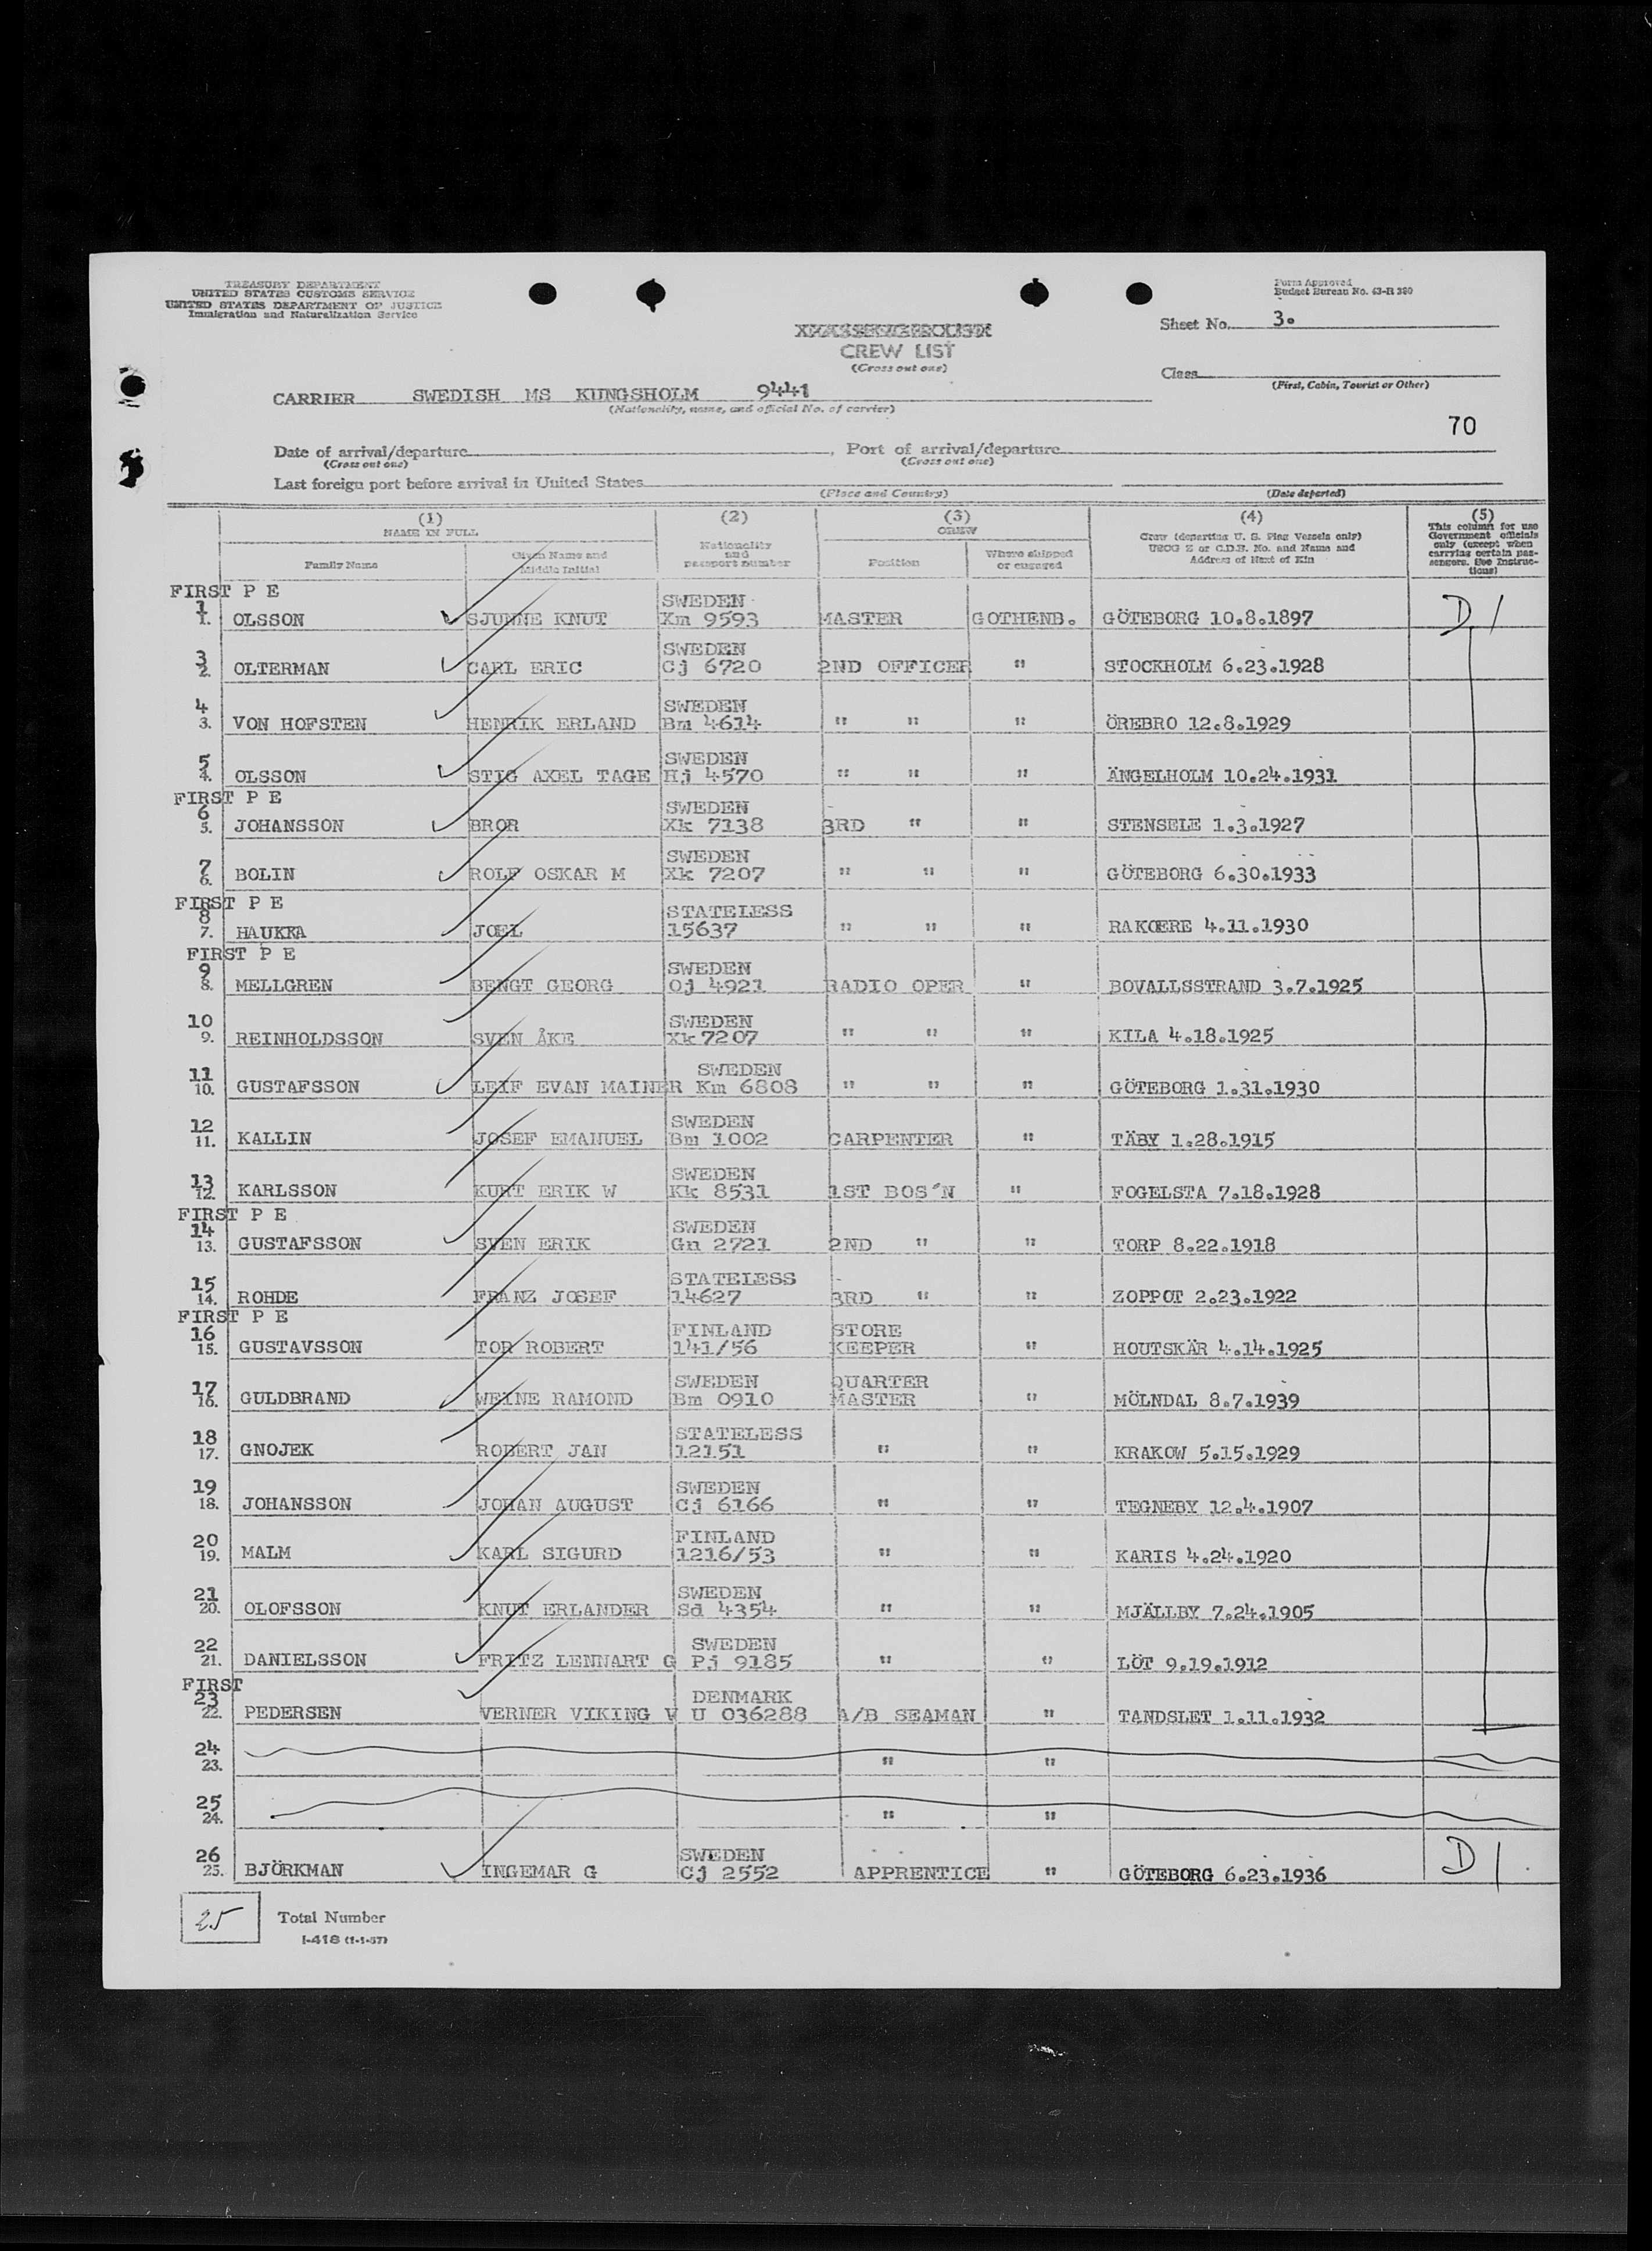 TREASURY DEPARTMENT
UNITED STATES CUSTOMS SERVICE
UNITED STATES DEPARTMENT OF JUSTICE
Immigration and Naturalization Service
Form Approved
Budget Bureau No. 43-R 380
Sheet No. 3.
CREW LIST
(Cross out one)
Class
(First, Cabin, Tourist or Other)
CARRIER SWEDISH MS KUNGSHOLM 9441
(Nationality, name, and official No. of carrier)
70
Date of arrival/departure , Port of arrival/departure
(Cross out one) (Cross out one)
Last foreign port before arrival in United States
(Place and Country) (Date departed)
(1) (2) (3) (4) (5)
NAME IN FULL Nationality and passport number CREW Crew (departing U. S. Flag Vessels only) USCG Z or C.D.B. No. and Name and Address of Next of Kin This column for use Government officials only (except when carrying certain passengers. See Instructions)
Family Name Given Name and Middle Initial Position Where shipped or engaged
FIRST P E SWEDEN
1 1. OLSSON SJUNNE KNUT Xm 9593 MASTER GOTHENB. GÖTEBORG 10.8.1897 D 1
SWEDEN
3 2. OLTERMAN CARL ERIC Cj 6720 2ND OFFICER " STOCKHOLM 6.23.1928
SWEDEN
4 3. VON HOFSTEN HENRIK ERLAND Bm 4614 " " " ÖREBRO 12.8.1929
SWEDEN
5 4. OLSSON STIG AXEL TAGE Hj 4570 " " " ÄNGELHOLM 10.24.1931
FIRST P E SWEDEN
6 5. JOHANSSON BROR Xk 7138 3RD " " STENSELE 1.3.1927
SWEDEN
7 6. BOLIN ROLF OSKAR M Xk 7207 " " " GÖTEBORG 6.30.1933
FIRST P E STATELESS
8 7. HAUKKA JOEL 15637 " " " RAKOERE 4.11.1930
FIRST P E SWEDEN
9 8. MELLGREN BENGT GEORG Oj 4921 RADIO OPER " BOVALLSSTRAND 3.7.1925
SWEDEN
10 9. REINHOLDSSON SVEN ÅKE Xk 7207 " " " KILA 4.18.1925
SWEDEN
11 10. GUSTAFSSON LEIF EVAN MAINER Km 6808 " " " GÖTEBORG 1.31.1930
SWEDEN
12 11. KALLIN JOSEF EMANUEL Bm 1002 CARPENTER " TÄBY 1.28.1915
SWEDEN
13 12. KARLSSON KURT ERIK W Kk 8531 1ST BOS'N " FOGELSTA 7.18.1928
FIRST P E SWEDEN
14 13. GUSTAFSSON SVEN ERIK Gn 2721 2ND " " TORP 8.22.1918
STATELESS
15 14. ROHDE FRANZ JOSEF 14627 3RD " " ZOPPOT 2.23.1922
FIRST P E FINLAND STORE
16 15. GUSTAVSSON TOR ROBERT 141/56 KEEPER " HOUTSKÄR 4.14.1925
SWEDEN QUARTER
17 16. GULDBRAND WEINE RAMOND Bm 0910 MASTER " MÖLNDAL 8.7.1939
STATELESS
18 17. GNOJEK ROBERT JAN 12151 " " KRAKOW 5.15.1929
SWEDEN
19 18. JOHANSSON JOHAN AUGUST Cj 6166 " " TEGNEBY 12.4.1907
FINLAND
20 19. MALM KARL SIGURD 1216/53 " " KARIS 4.24.1920
SWEDEN
21 20. OLOFSSON KNUT ERLANDER Sd 4354 " " MJÄLLBY 7.24.1905
SWEDEN
22 21. DANIELSSON FRITZ LENNART G Pj 9185 " " LÖT 9.19.1912
FIRST DENMARK
23 22. PEDERSEN VERNER VIKING W U 036288 A/B SEAMAN " TANDSLET 1.11.1932
24 23. " "
25 24. " "
SWEDEN
26 25. BJÖRKMAN INGEMAR G Cj 2552 APPRENTICE " GÖTEBORG 6.23.1936 D 1
25 Total Number
I-418 (1-1-57)